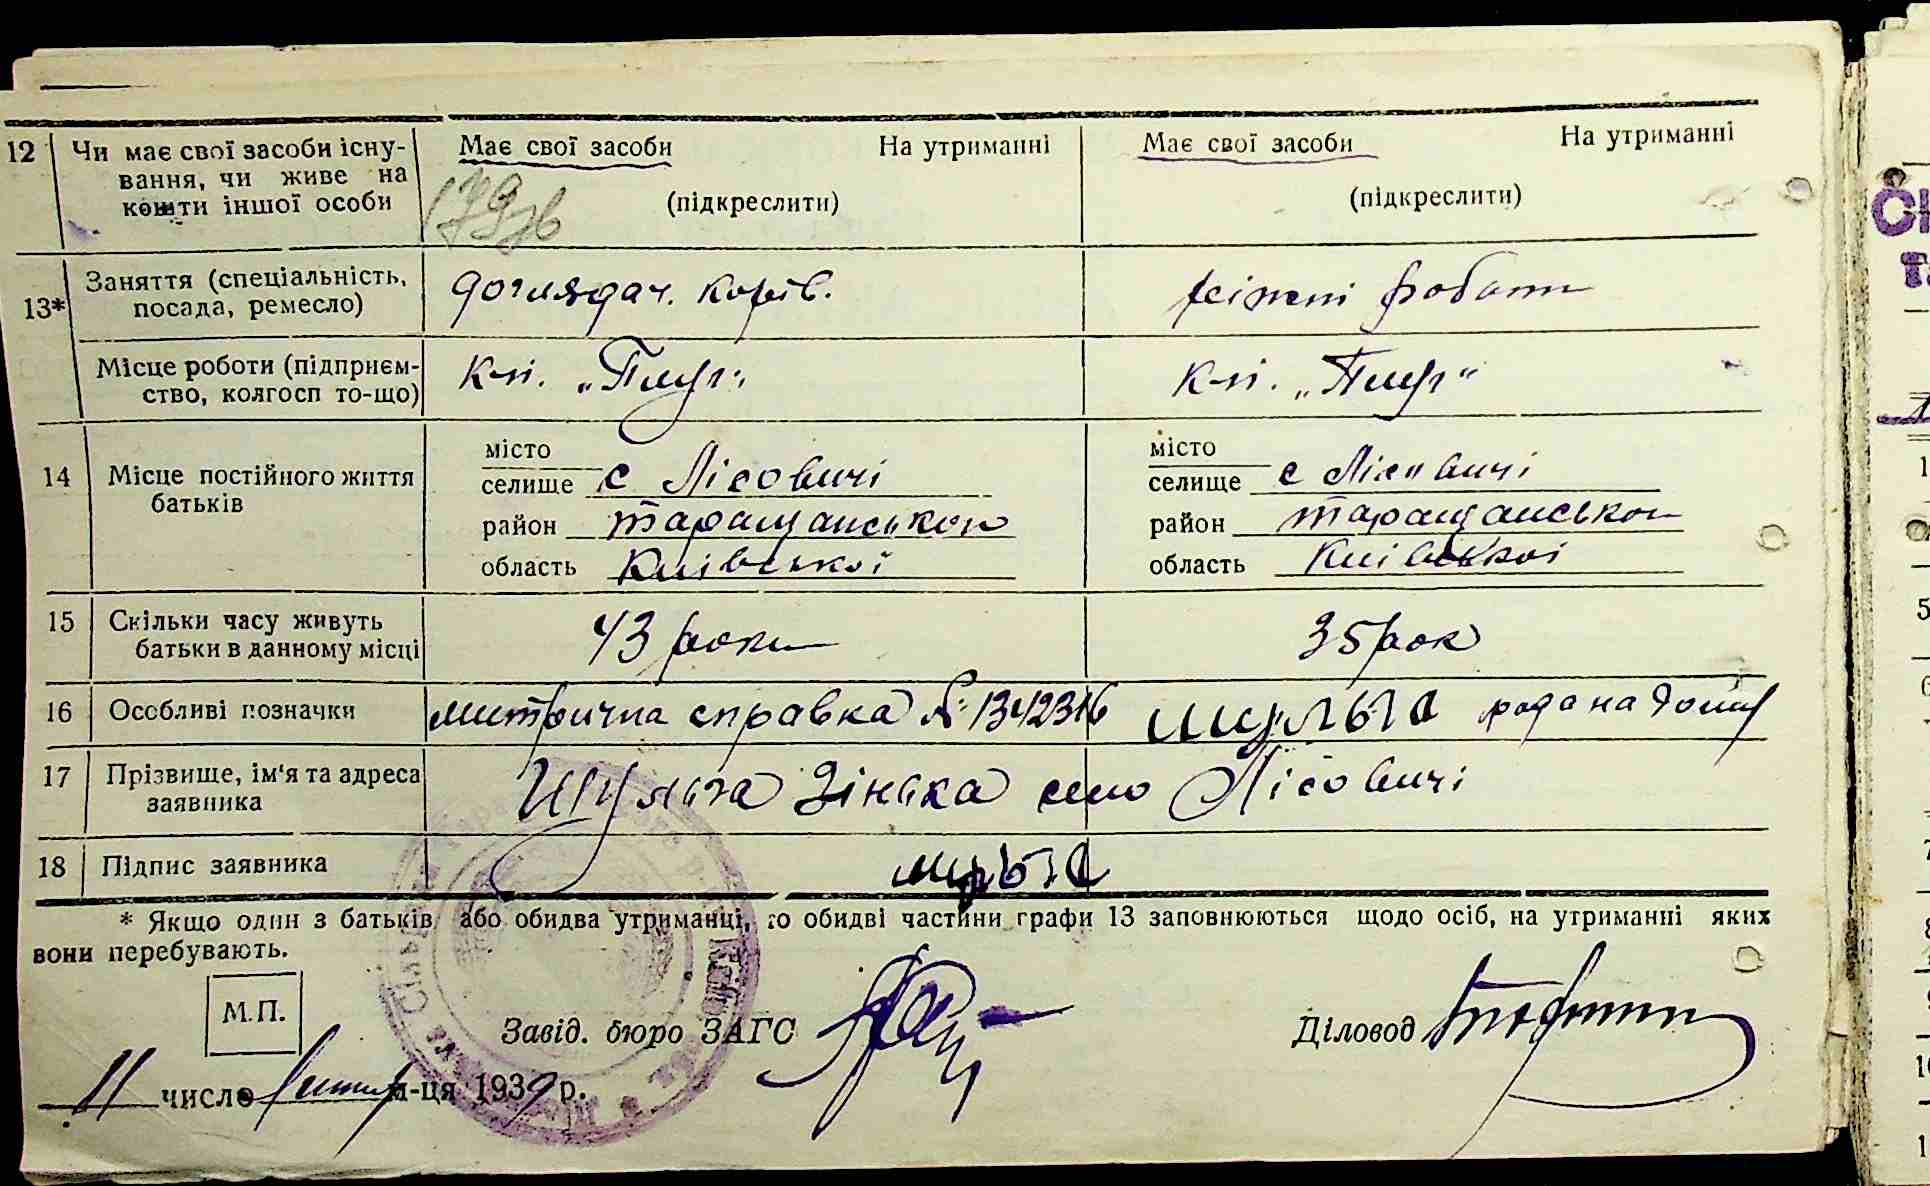 12 Чи має свої засоби існу- Має свої засоби На утриманні Має свої засоби На утриманні
вання, чи живе на
кошти іншої особи (підкреслити) (підкреслити)
13* Заняття (спеціальність, догляда ч. корів. ріжні роботи
посада, ремесло)
Місце роботи (підприєм- к-п. „Плуг" к-п. „Плуг"
ство, колгосп то-що)
14 Місце постійного життя місто місто
батьків селище с Лісовичі селище с Лісовичі
район таращанського район таращанського
область Київської область Київської
15 Скільки часу живуть 43 роки 35 рок
батьки в данному місці
16 Особливі позначки митрична справка № 1342316 шульга
17 Прізвище, ім'я та адреса Шульга Зінька село Лісовичі
заявника
18 Підпис заявника
* Якщо один з батьків або обидва утриманці, то обидві частини графи 13 заповнюються щодо осіб, на утриманні яких
вони перебувають.
М.П.
Завід. бюро ЗАГС Діловод
11 число м-ця 1939 р.